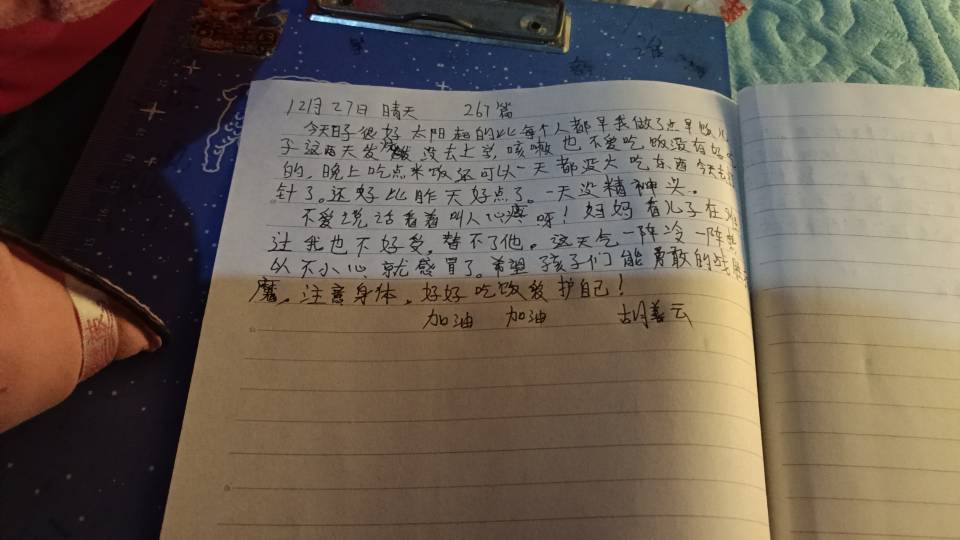 12月27日 晴天 267篇
今天日子很好 太阳 起的比每个人都早我做了点早饭儿
子这两天发烧 没去上学, 咳嗽也不爱吃饭没有
的, 晚上吃点米饭还可以一天都没大吃东西今天去
针了。还好比昨天好点了。一天没精神头。
不爱说话看着叫人心疼呀! 妈妈 看儿子在
让我也不好受, 替不了他。这天气一阵冷一阵
以不小心就感冒了。希望孩子们能勇敢的战
魔, 注意身体, 好好吃饭爱护自己!
加油 加油 胡善云